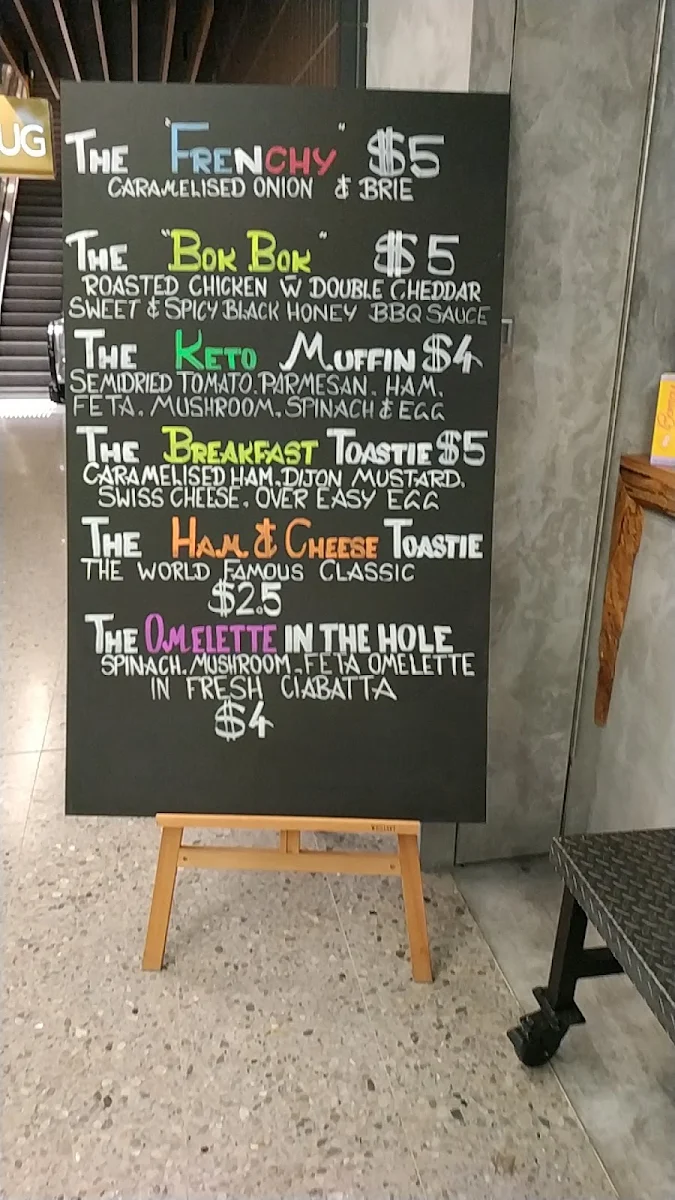 UG
THE "FRENCHY" $5
CARAMELISED ONION & BRIE
THE "BOK BOK" $5
ROASTED CHICKEN W DOUBLE CHEDDAR
SWEET & SPICY BLACK HONEY BBQ SAUCE
THE KETO MUFFIN $4
SEMIDRIED TOMATO. PARMESAN. HAM.
FETA. MUSHROOM. SPINACH & EGG
THE BREAKFAST TOASTIE $5
CARAMELISED HAM. DIJON MUSTARD.
SWISS CHEESE. OVER EASY EGG
THE HAM & CHEESE TOASTIE
THE WORLD FAMOUS CLASSIC
$2.5
THE OMELETTE IN THE HOLE
SPINACH. MUSHROOM. FETA OMELETTE
IN FRESH CIABATTA
$4